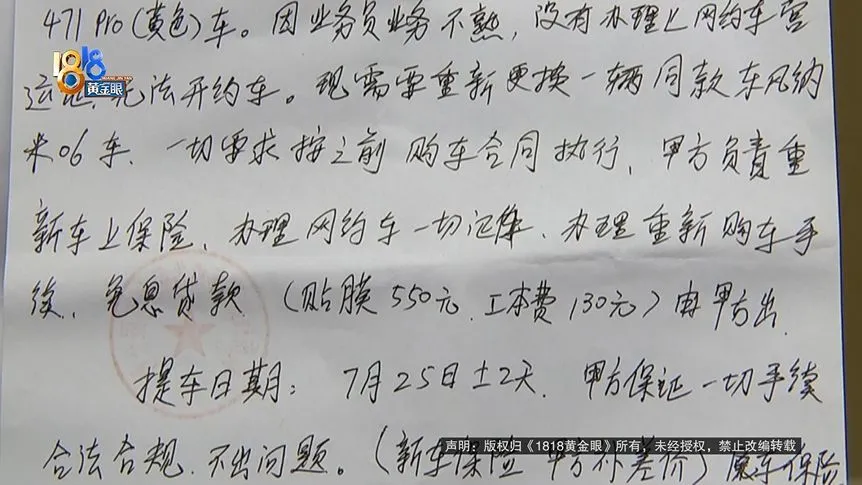 471 Pro(黄色)车。因业务员业务不熟,没有办理上网约车营
运证,无法开约车。现需要重新更换一辆同款东风纳
米06车、一切要求按之前购车合同执行,甲方负责重
新车上保险、办理网约车一切证件、办理重新购车手
续、免息贷款(贴膜550元、工本费130元)由甲方出
提车日期:7月25日±2天、甲方保证一切手续
合法合规、不出问题。(新车保险 甲方补差价)原车保险
1818
黄金眼
声明:版权归《1818黄金眼》所有,未经授权,禁止改编转载